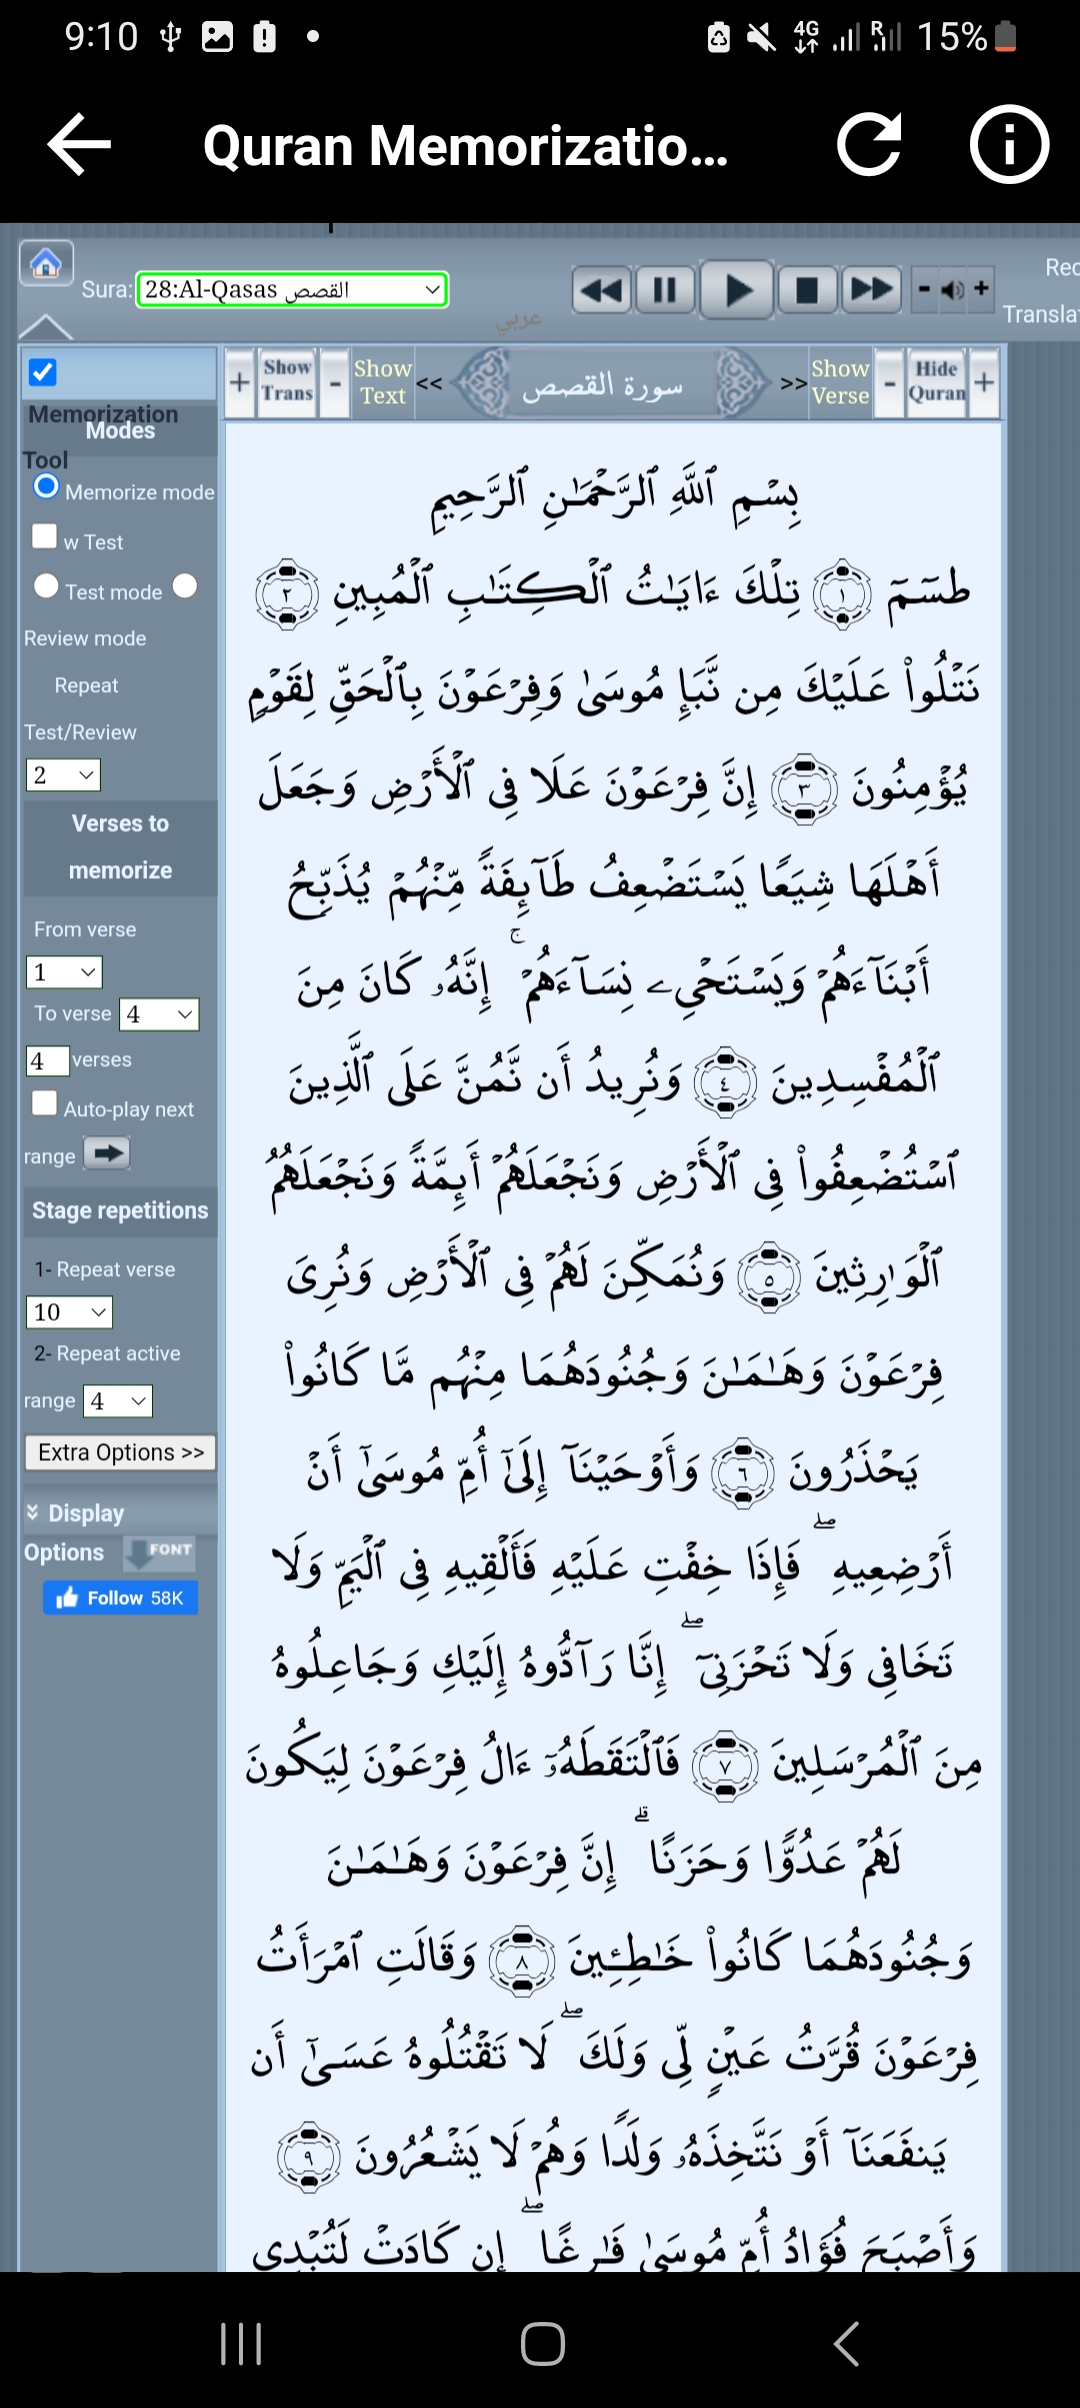 9:10
4G R 15%
Quran Memorizatio...
Sura: 28:Al-Qasas القصص
عربي
Rec
Transla
+ Show Trans - Show Text << سورة القصص >> Show Verse - Hide Quran +
Memorization
Modes
Tool
Memorize mode
w Test
Test mode
Review mode
Repeat
Test/Review
2
Verses to
memorize
From verse
1
To verse 4
4 verses
Auto-play next
range
Stage repetitions
1- Repeat verse
10
2- Repeat active
range 4
Extra Options >>
Display
Options FONT
Follow 58K
بِسْمِ ٱللَّهِ ٱلرَّحْمَـٰنِ ٱلرَّحِيمِ
طسٓمٓ ١ تِلْكَ ءَايَـٰتُ ٱلْكِتَـٰبِ ٱلْمُبِينِ ٢
نَتْلُوا۟ عَلَيْكَ مِن نَّبَإِ مُوسَىٰ وَفِرْعَوْنَ بِٱلْحَقِّ لِقَوْمٍ
يُؤْمِنُونَ ٣ إِنَّ فِرْعَوْنَ عَلَا فِى ٱلْأَرْضِ وَجَعَلَ
أَهْلَهَا شِيَعًا يَسْتَضْعِفُ طَآئِفَةً مِّنْهُمْ يُذَبِّحُ
أَبْنَآءَهُمْ وَيَسْتَحْىِۦ نِسَآءَهُمْ ۚ إِنَّهُۥ كَانَ مِنَ
ٱلْمُفْسِدِينَ ٤ وَنُرِيدُ أَن نَّمُنَّ عَلَى ٱلَّذِينَ
ٱسْتُضْعِفُوا۟ فِى ٱلْأَرْضِ وَنَجْعَلَهُمْ أَئِمَّةً وَنَجْعَلَهُمُ
ٱلْوَٰرِثِينَ ٥ وَنُمَكِّنَ لَهُمْ فِى ٱلْأَرْضِ وَنُرِىَ
فِرْعَوْنَ وَهَـٰمَـٰنَ وَجُنُودَهُمَا مِنْهُم مَّا كَانُوا۟
يَحْذَرُونَ ٦ وَأَوْحَيْنَآ إِلَىٰٓ أُمِّ مُوسَىٰٓ أَنْ
أَرْضِعِيهِ ۖ فَإِذَا خِفْتِ عَلَيْهِ فَأَلْقِيهِ فِى ٱلْيَمِّ وَلَا
تَخَافِى وَلَا تَحْزَنِىٓ ۖ إِنَّا رَآدُّوهُ إِلَيْكِ وَجَاعِلُوهُ
مِنَ ٱلْمُرْسَلِينَ ٧ فَٱلْتَقَطَهُۥٓ ءَالُ فِرْعَوْنَ لِيَكُونَ
لَهُمْ عَدُوًّا وَحَزَنًا ۗ إِنَّ فِرْعَوْنَ وَهَـٰمَـٰنَ
وَجُنُودَهُمَا كَانُوا۟ خَـٰطِـِٔينَ ٨ وَقَالَتِ ٱمْرَأَتُ
فِرْعَوْنَ قُرَّتُ عَيْنٍ لِّى وَلَكَ ۖ لَا تَقْتُلُوهُ عَسَىٰٓ أَن
يَنفَعَنَآ أَوْ نَتَّخِذَهُۥ وَلَدًا وَهُمْ لَا يَشْعُرُونَ ٩
وَأَصْبَحَ فُؤَادُ أُمِّ مُوسَىٰ فَـٰرِغًا ۖ إِن كَادَتْ لَتُبْدِى